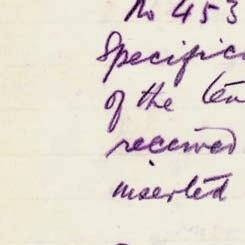 No 453
Specific
of the ten
received
inserted